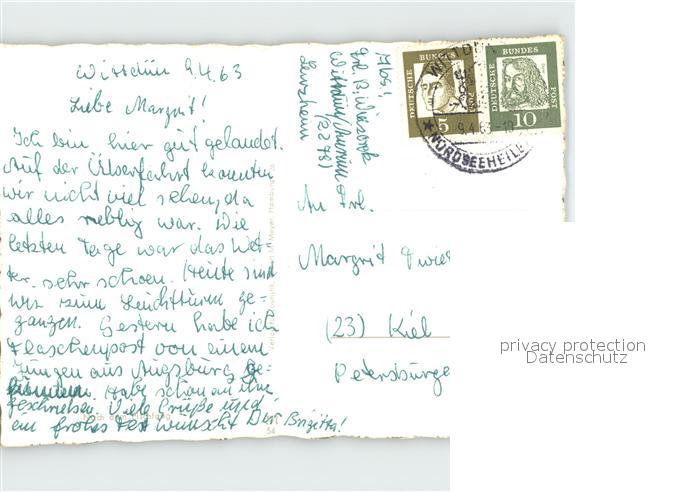 Wittdün 9.4.63
Liebe Margrit!
Ich bin hier gut gelandet.
Auf der Überfahrt konnten
wir nicht viel sehen, da
alles neblig war. Die
letzten Tage war das Wet-
ter sehr schoen. Heute sind
wir zum Leuchtturm ge-
gangen. Gestern habe ich
Flaschenpost von einem
Jungen aus Augsburg ge-
funden. Habe schon an ihn
geschrieben. Viele Grüße und
ein frohes Fest wünscht Dir Brigitta!
54
Abs.:
Frl. B.
Wittdün/Amrum
(2278)
Lenzheim
DEUTSCHE BUNDES POST
5
DEUTSCHE BUNDES POST
10
WITTDÜN
9.4.63-18
NORDSEEHEILB
An Frl.
Margrit
(23) Kiel
Petersburge
privacy protection
Datenschutz